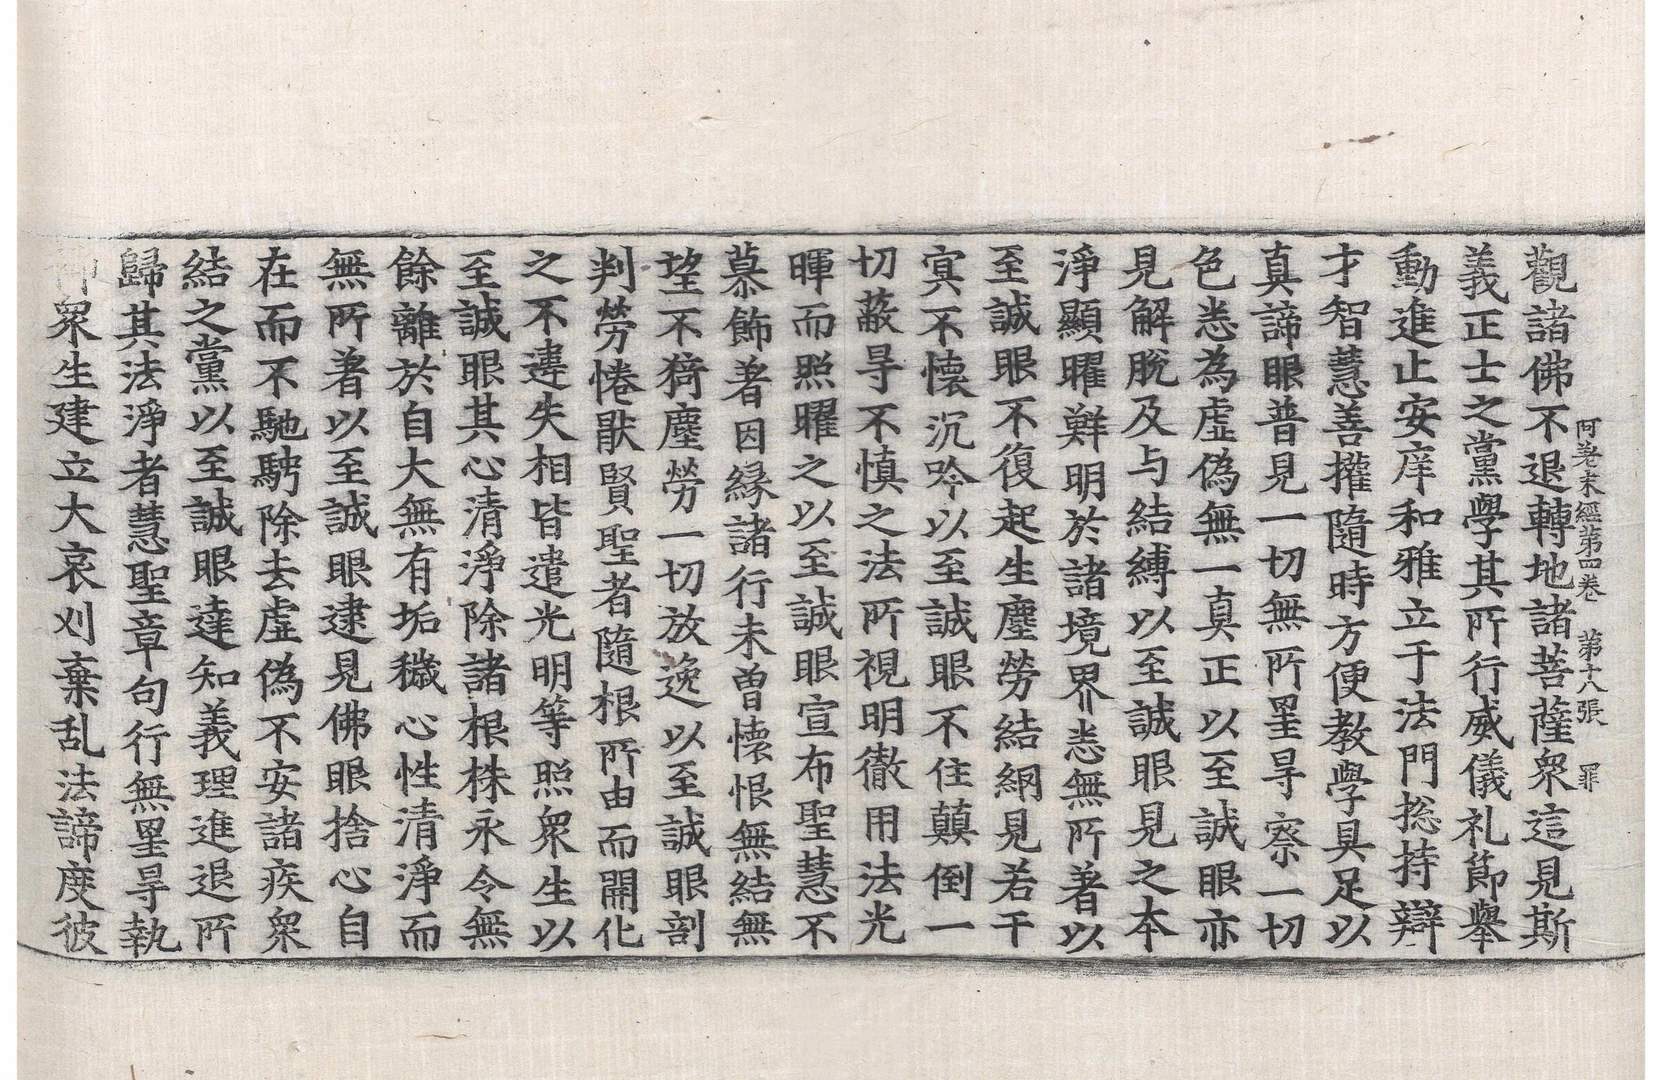 阿差末經第四卷　第十八張　罪
觀諸佛不退轉地諸菩薩衆這見斯
義正士之黨學其所行威儀礼節舉
動進止安庠和雅立于法門捴持辯
才智慧善攉隨時方便教學具足以
真諦眼普見一切無所罣㝵察一切
色悉為虛偽無一真正以至誠眼亦
見解脫及与結縛以至誠眼見之本
淨顯曜鮮明於諸境界悉無所著以
至誠眼不復起生塵勞結網見若干
㝠不懷沉吟以至誠眼不住顛倒一
切蔽㝵不慎之法所視明徹用法光
暉而照曜之以至誠眼宣布聖慧不
慕飾著因緣諸行未曾懷恨無結無
望不猗塵勞一切放逸以至誠眼剖
判勞惓猒賢聖者隨根所由而開化
之不違失相皆遣光明等照衆生以
至誠眼其心清淨除諸根株永令無
餘離於自大無有垢穢心性清淨而
無所著以至誠眼逮見佛眼捨心自
在而不馳騁除去虛偽不安諸疾衆
結之黨以至誠眼達知義理進退所
歸其法淨者慧聖章句行無罣㝵執
御衆生建立大哀刈棄乱法諦度彼